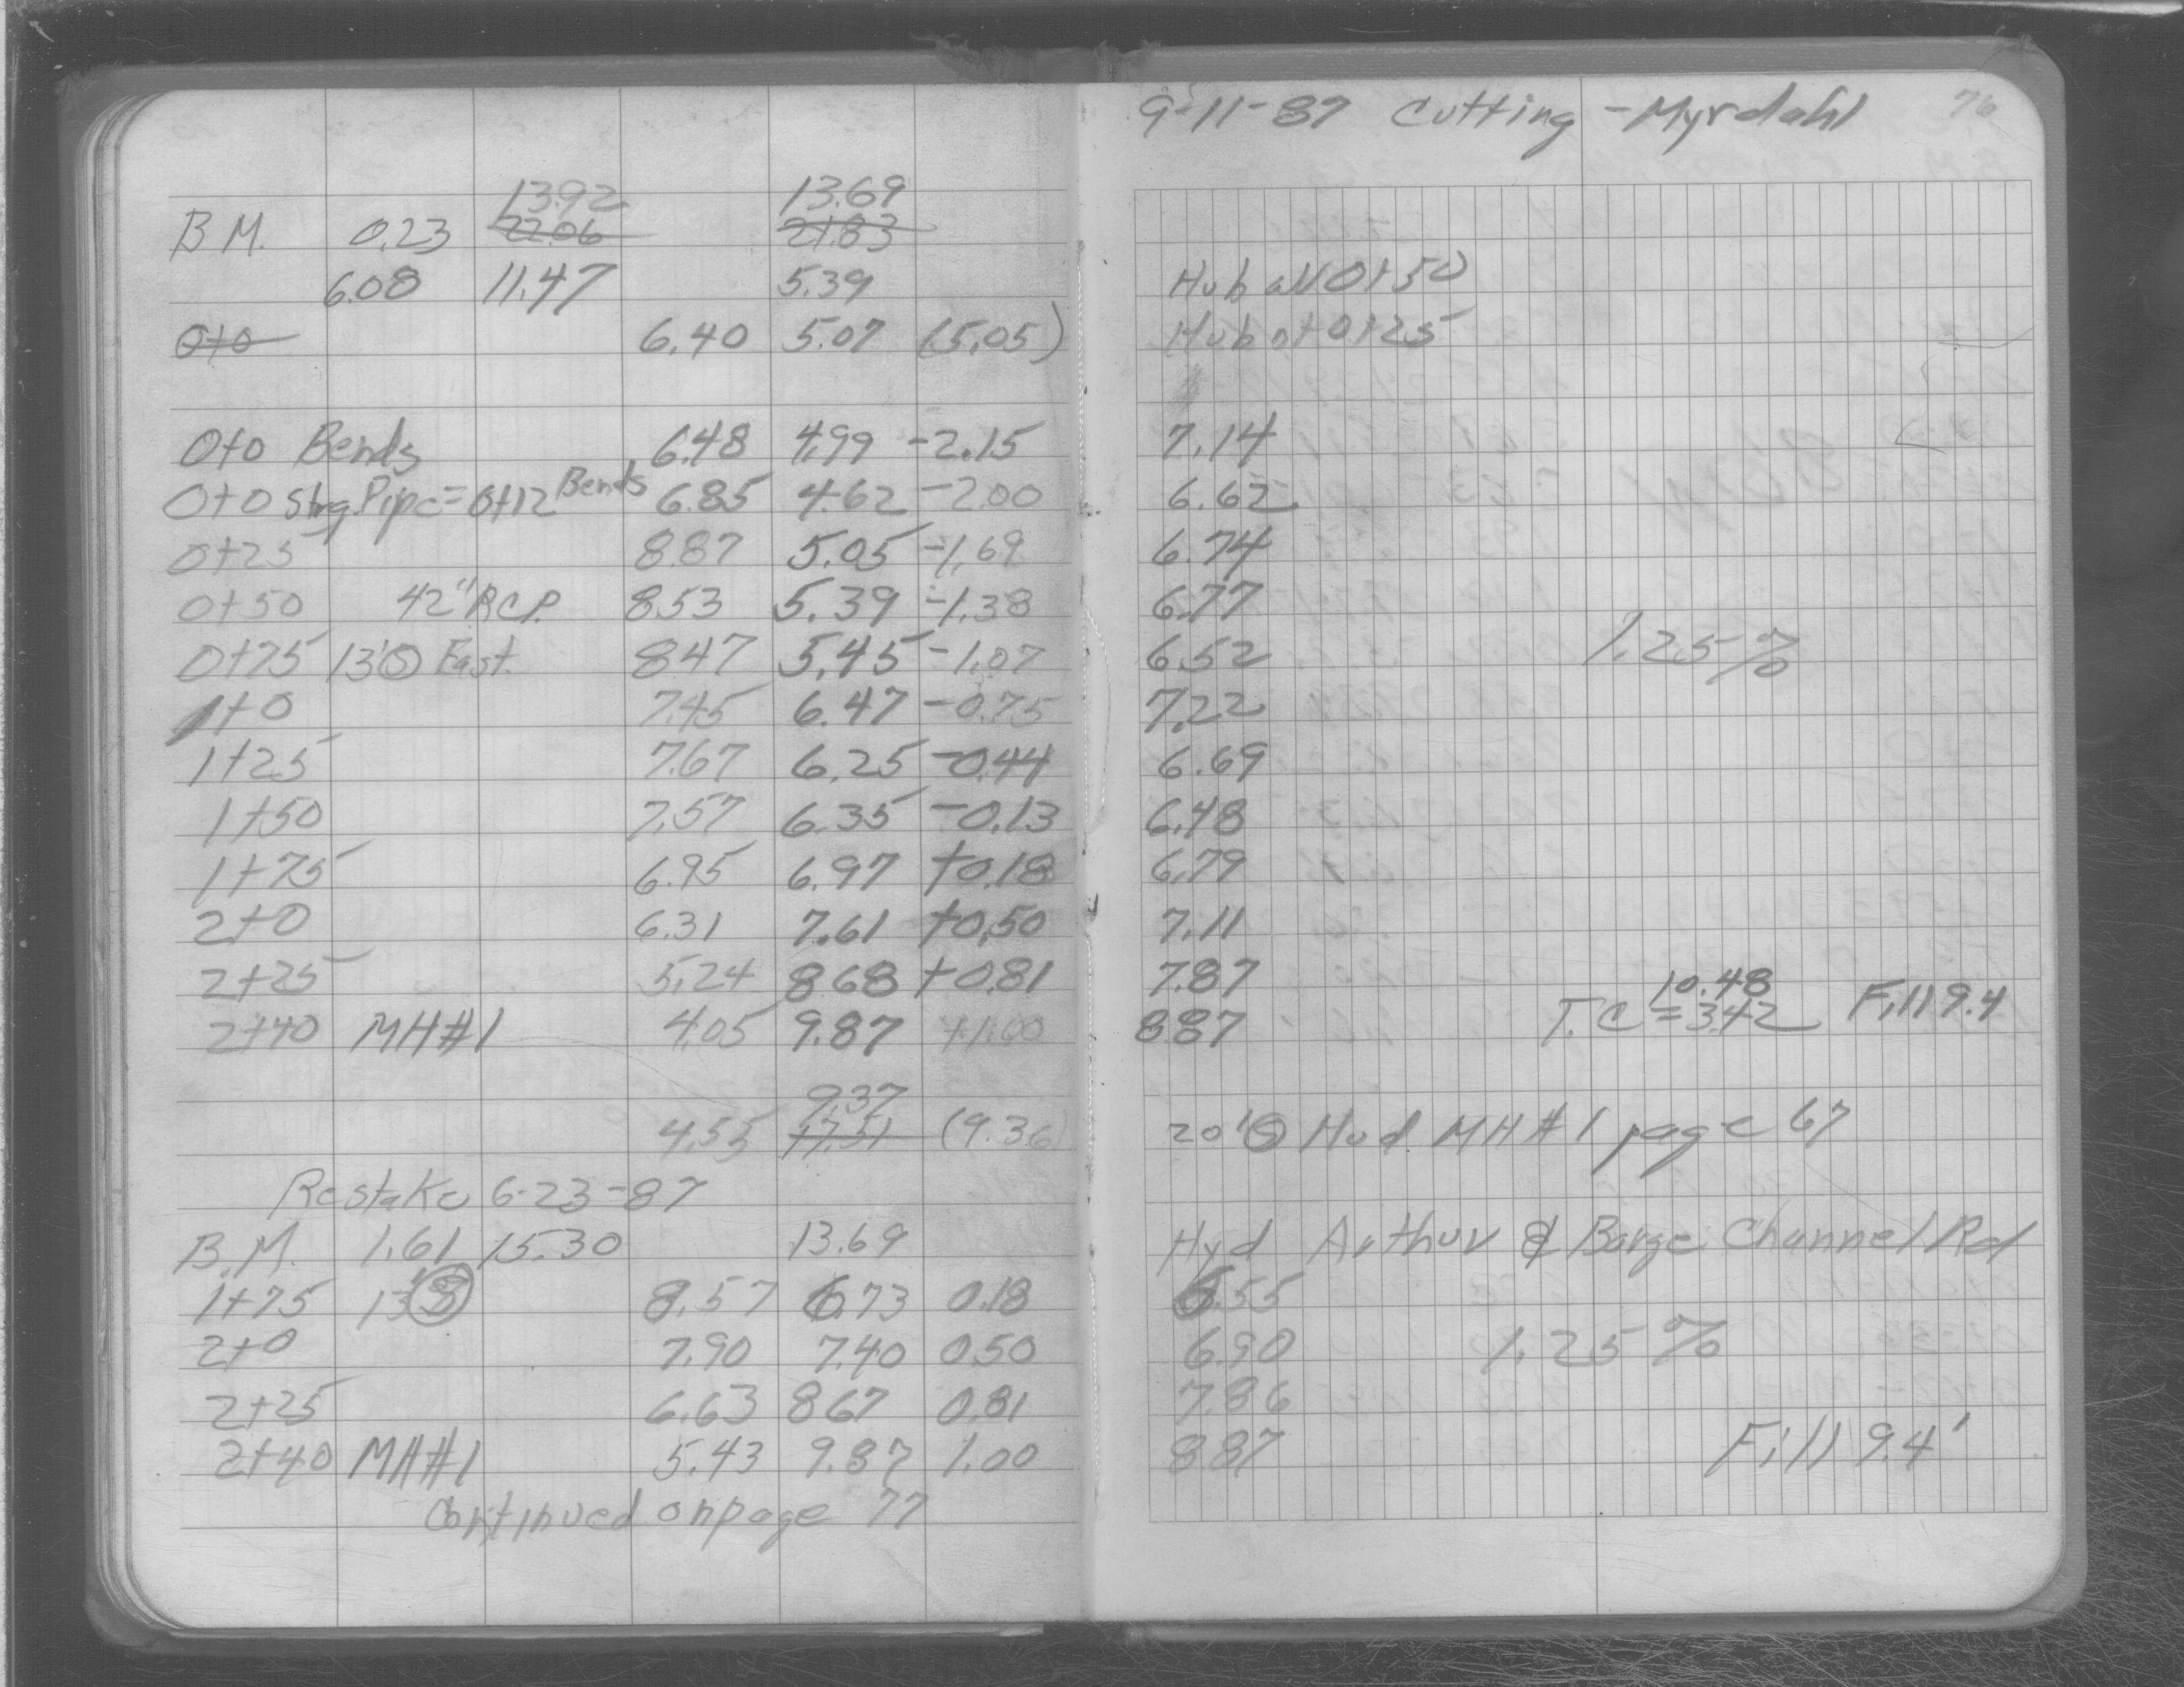 9-11-87 Cutting - Myrdahl 76
13.92 13.69
B.M. 0.23 22.06 21.83
6.08 11.47 5.39 Hub at 0+50
0+0 6.40 5.07 (5.05) Hub at 0+25
0+0 Bends 6.48 4.99 -2.15 7.14
0+0 Strg. Pipe = 0+12 Bends 6.85 4.62 -2.00 6.62
0+25 8.87 5.05 -1.69 6.74
0+50 42" R.C.P. 8.53 5.39 -1.38 6.77
0+75 13' Ⓢ East. 8.47 5.45 -1.07 6.52 1.25%
1+0 7.45 6.47 -0.75 7.22
1+25 7.67 6.25 -0.44 6.69
1+50 7.57 6.35 -0.13 6.48
1+75 6.95 6.97 +0.18 6.79
2+0 6.31 7.61 +0.50 7.11
2+25 5.24 8.68 +0.81 7.87 10.48
2+40 MH#1 4.05 9.87 +1.00 8.87 T.C = 3.42 Fill 9.4
9.37
4.55 17.51 (9.36) 20' Ⓢ Hud MH#1 page 67
Restake 6-23-87
B.M. 1.61 15.30 13.69 Hyd Arthur & Barge Channel Rd
1+75 13' Ⓢ 8.57 6.73 0.18 6.55
2+0 7.90 7.40 0.50 6.90 1.25%
2+25 6.63 8.67 0.81 7.86
2+40 MH#1 5.43 9.87 1.00 8.87 Fill 9.4'
Continued on page 77